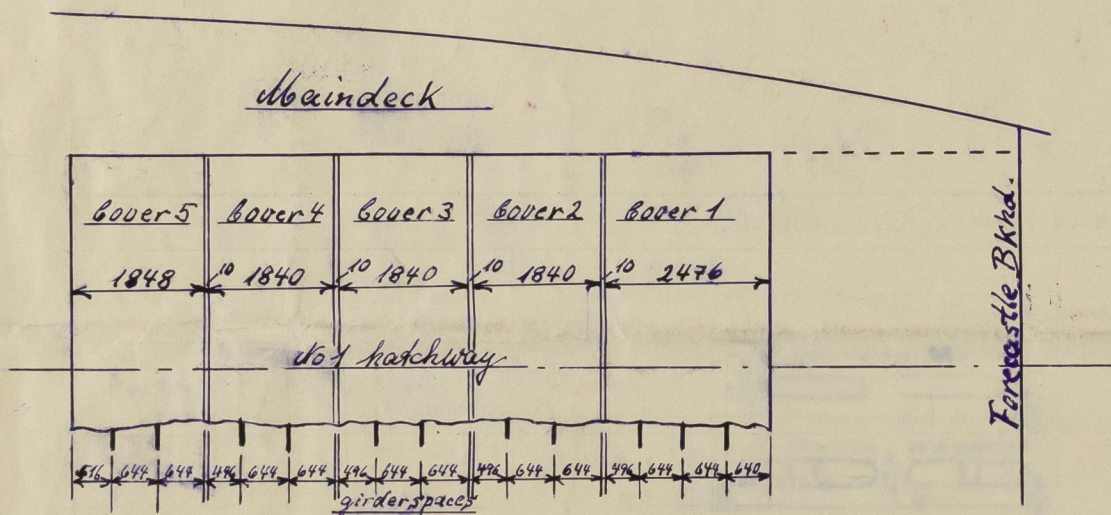 Maindeck
Cover 5 Cover 4 Cover 3 Cover 2 Cover 1
1848 10 1840 10 1840 10 1840 10 2476
No 1 hatchway
Forecastle Bkhd.
516 644 644 496 644 644 496 644 644 496 644 644 496 644 644 640
girderspaces